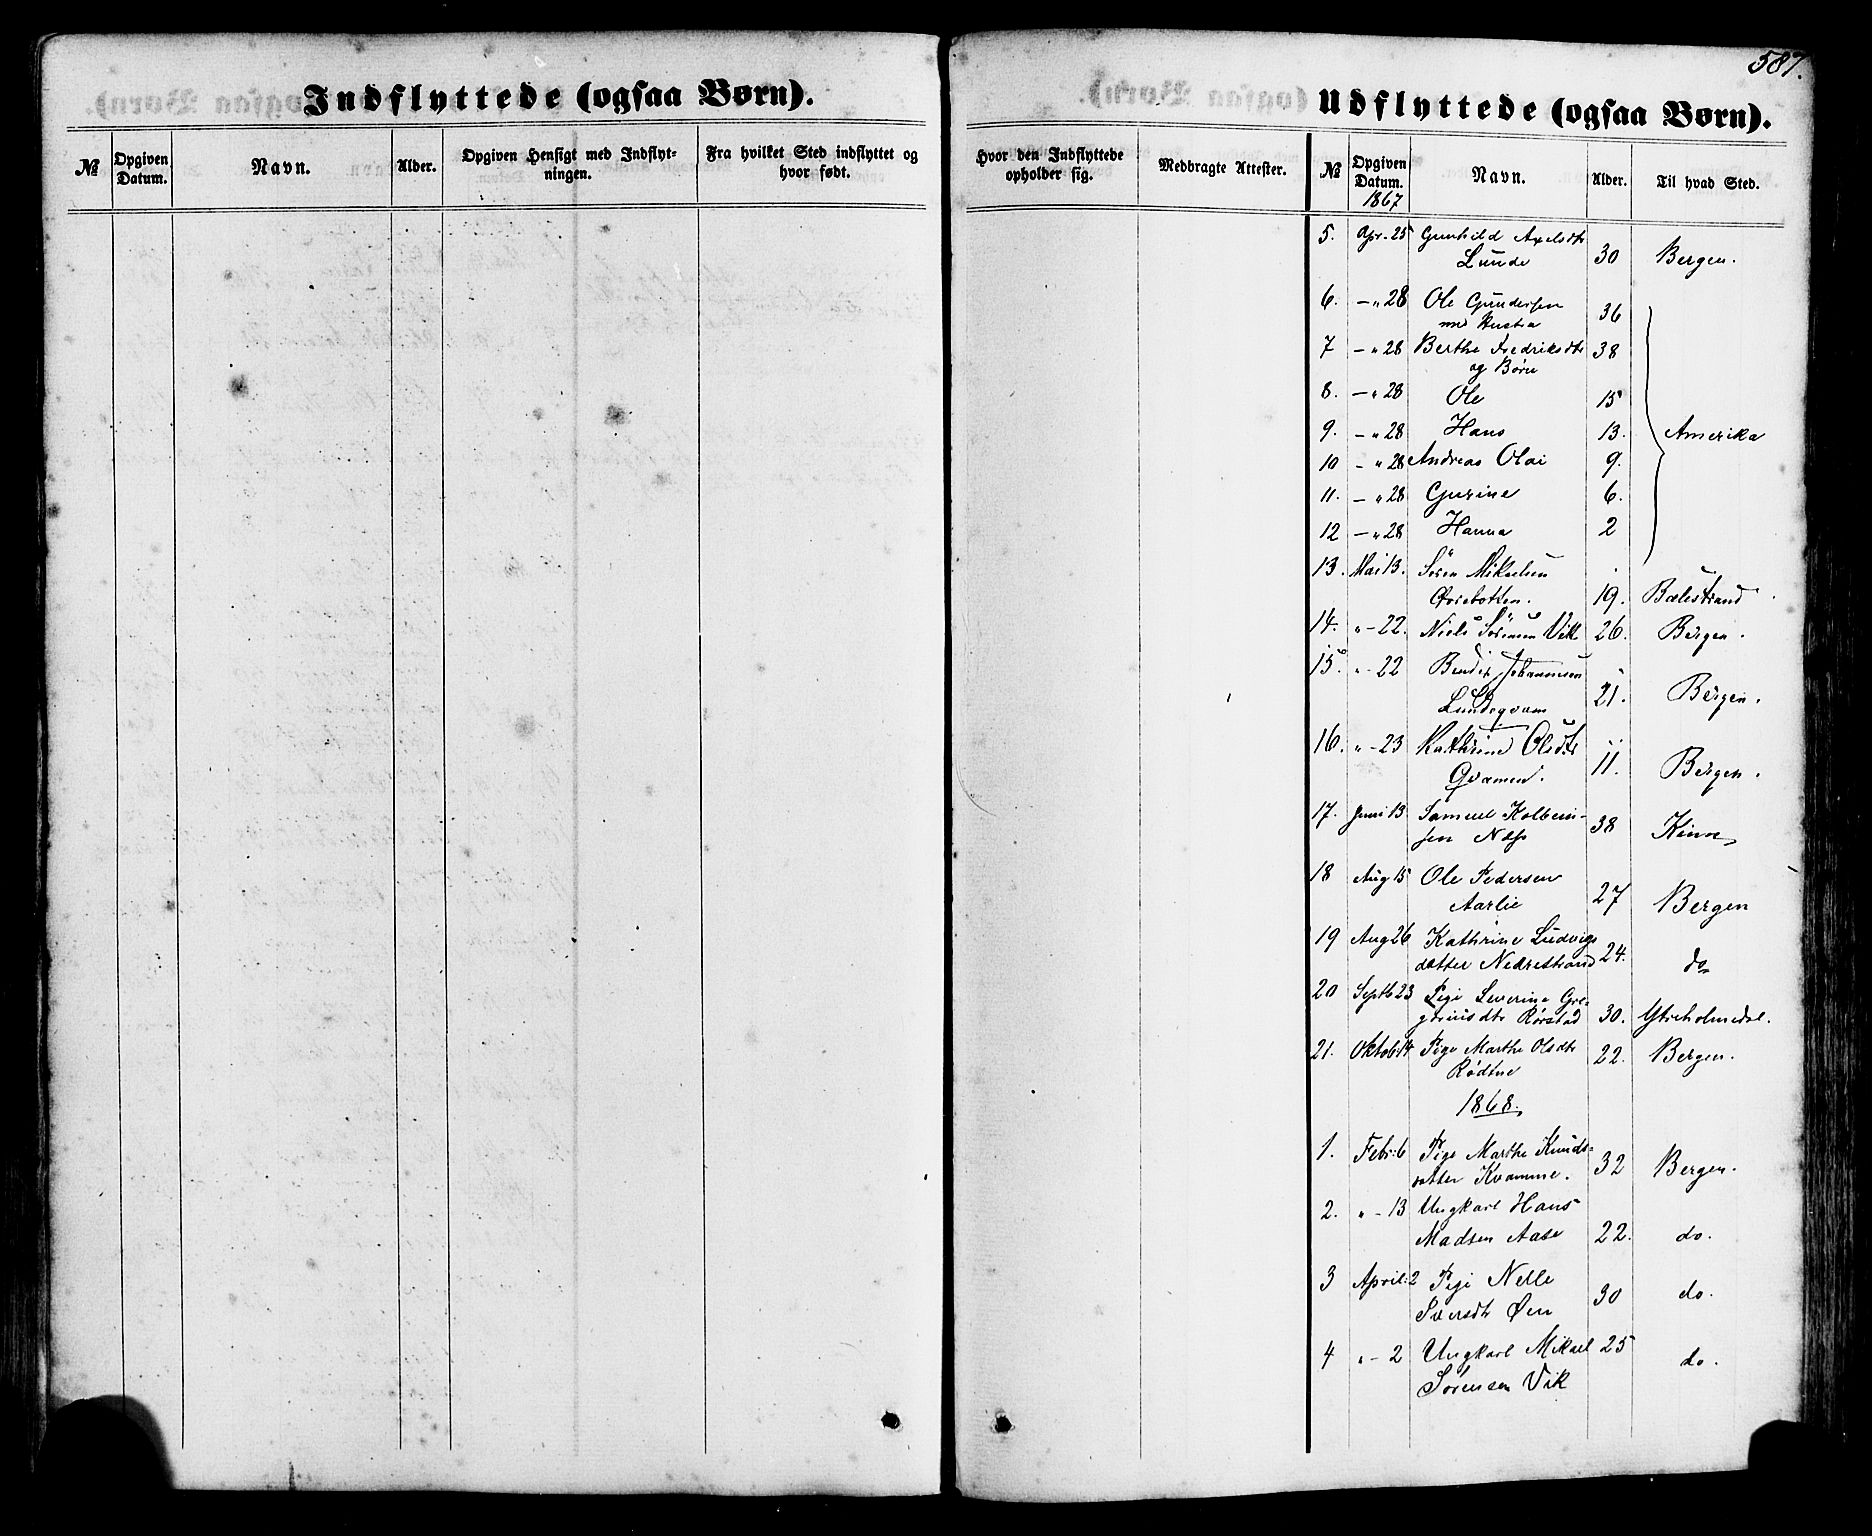 587.
Indflyttede (ogsaa Børn).
Udflyttede (ogsaa Børn).
№ Opgiven Datum. Navn. Alder. Opgiven Hensigt med Indflytningen. Fra hvilket Sted indflyttet og hvor født.
Hvor den Indflyttede opholder sig. Medbragte Attester. № Opgiven Datum. Navn. Alder. Til hvad Sted.
1867
5. Apr. 25 Gunhild Axelsdtr
Lunde 30 Bergen.
6. — " 28 Ole Gundersen 36
med Hustru
7 — " 28 Berthe Fredriksdtr 38
og Børn
8. — " 28 Ole 15
9. — " 28 Hans 13. Amerika
10 — " 28 Andreas Olai 9.
11. — " 28 Gurine 6.
12 — " 28 Hanna 2
13. Mai 13. Sören Mikaelsen
Øvrebotten. 19. Balestrand
14. " - 22. Niels Sörensen Vik 26. Bergen.
15. " - 22 Bendix Johannesen
Lundeqvam 21. Bergen.
16. " - 23 Kathrine Olsdtr
Qvamen. 11. Bergen.
17. Juni 13 Samuel Kolbein-
sen Næss 38 Kinn
18 Aug 15 Ole Pedersen
Aarlie 27 Bergen
19 Aug 26 Kathrine Ludvigs
datter Nedrestrand 24. do
20 Septb 23 Pige Severine Gre-
goriusdtr Rørstad 30. Ytreholmedal.
21. Oktob 14 Pige Marthe Olsdtr 22. Bergen.
Rödtne
1868.
1. Febr: 6 Pige Marthe Knuds-
datter Kvamme. 32 Bergen.
2. " - 13 Ungkarl Hans
Madsen Aase 22. do.
3 April: 2 Pige Nelle
Siversdtr Øen 30 do.
4 " - 2 Ungkarl Mikael 25
Sörensen Vik do.